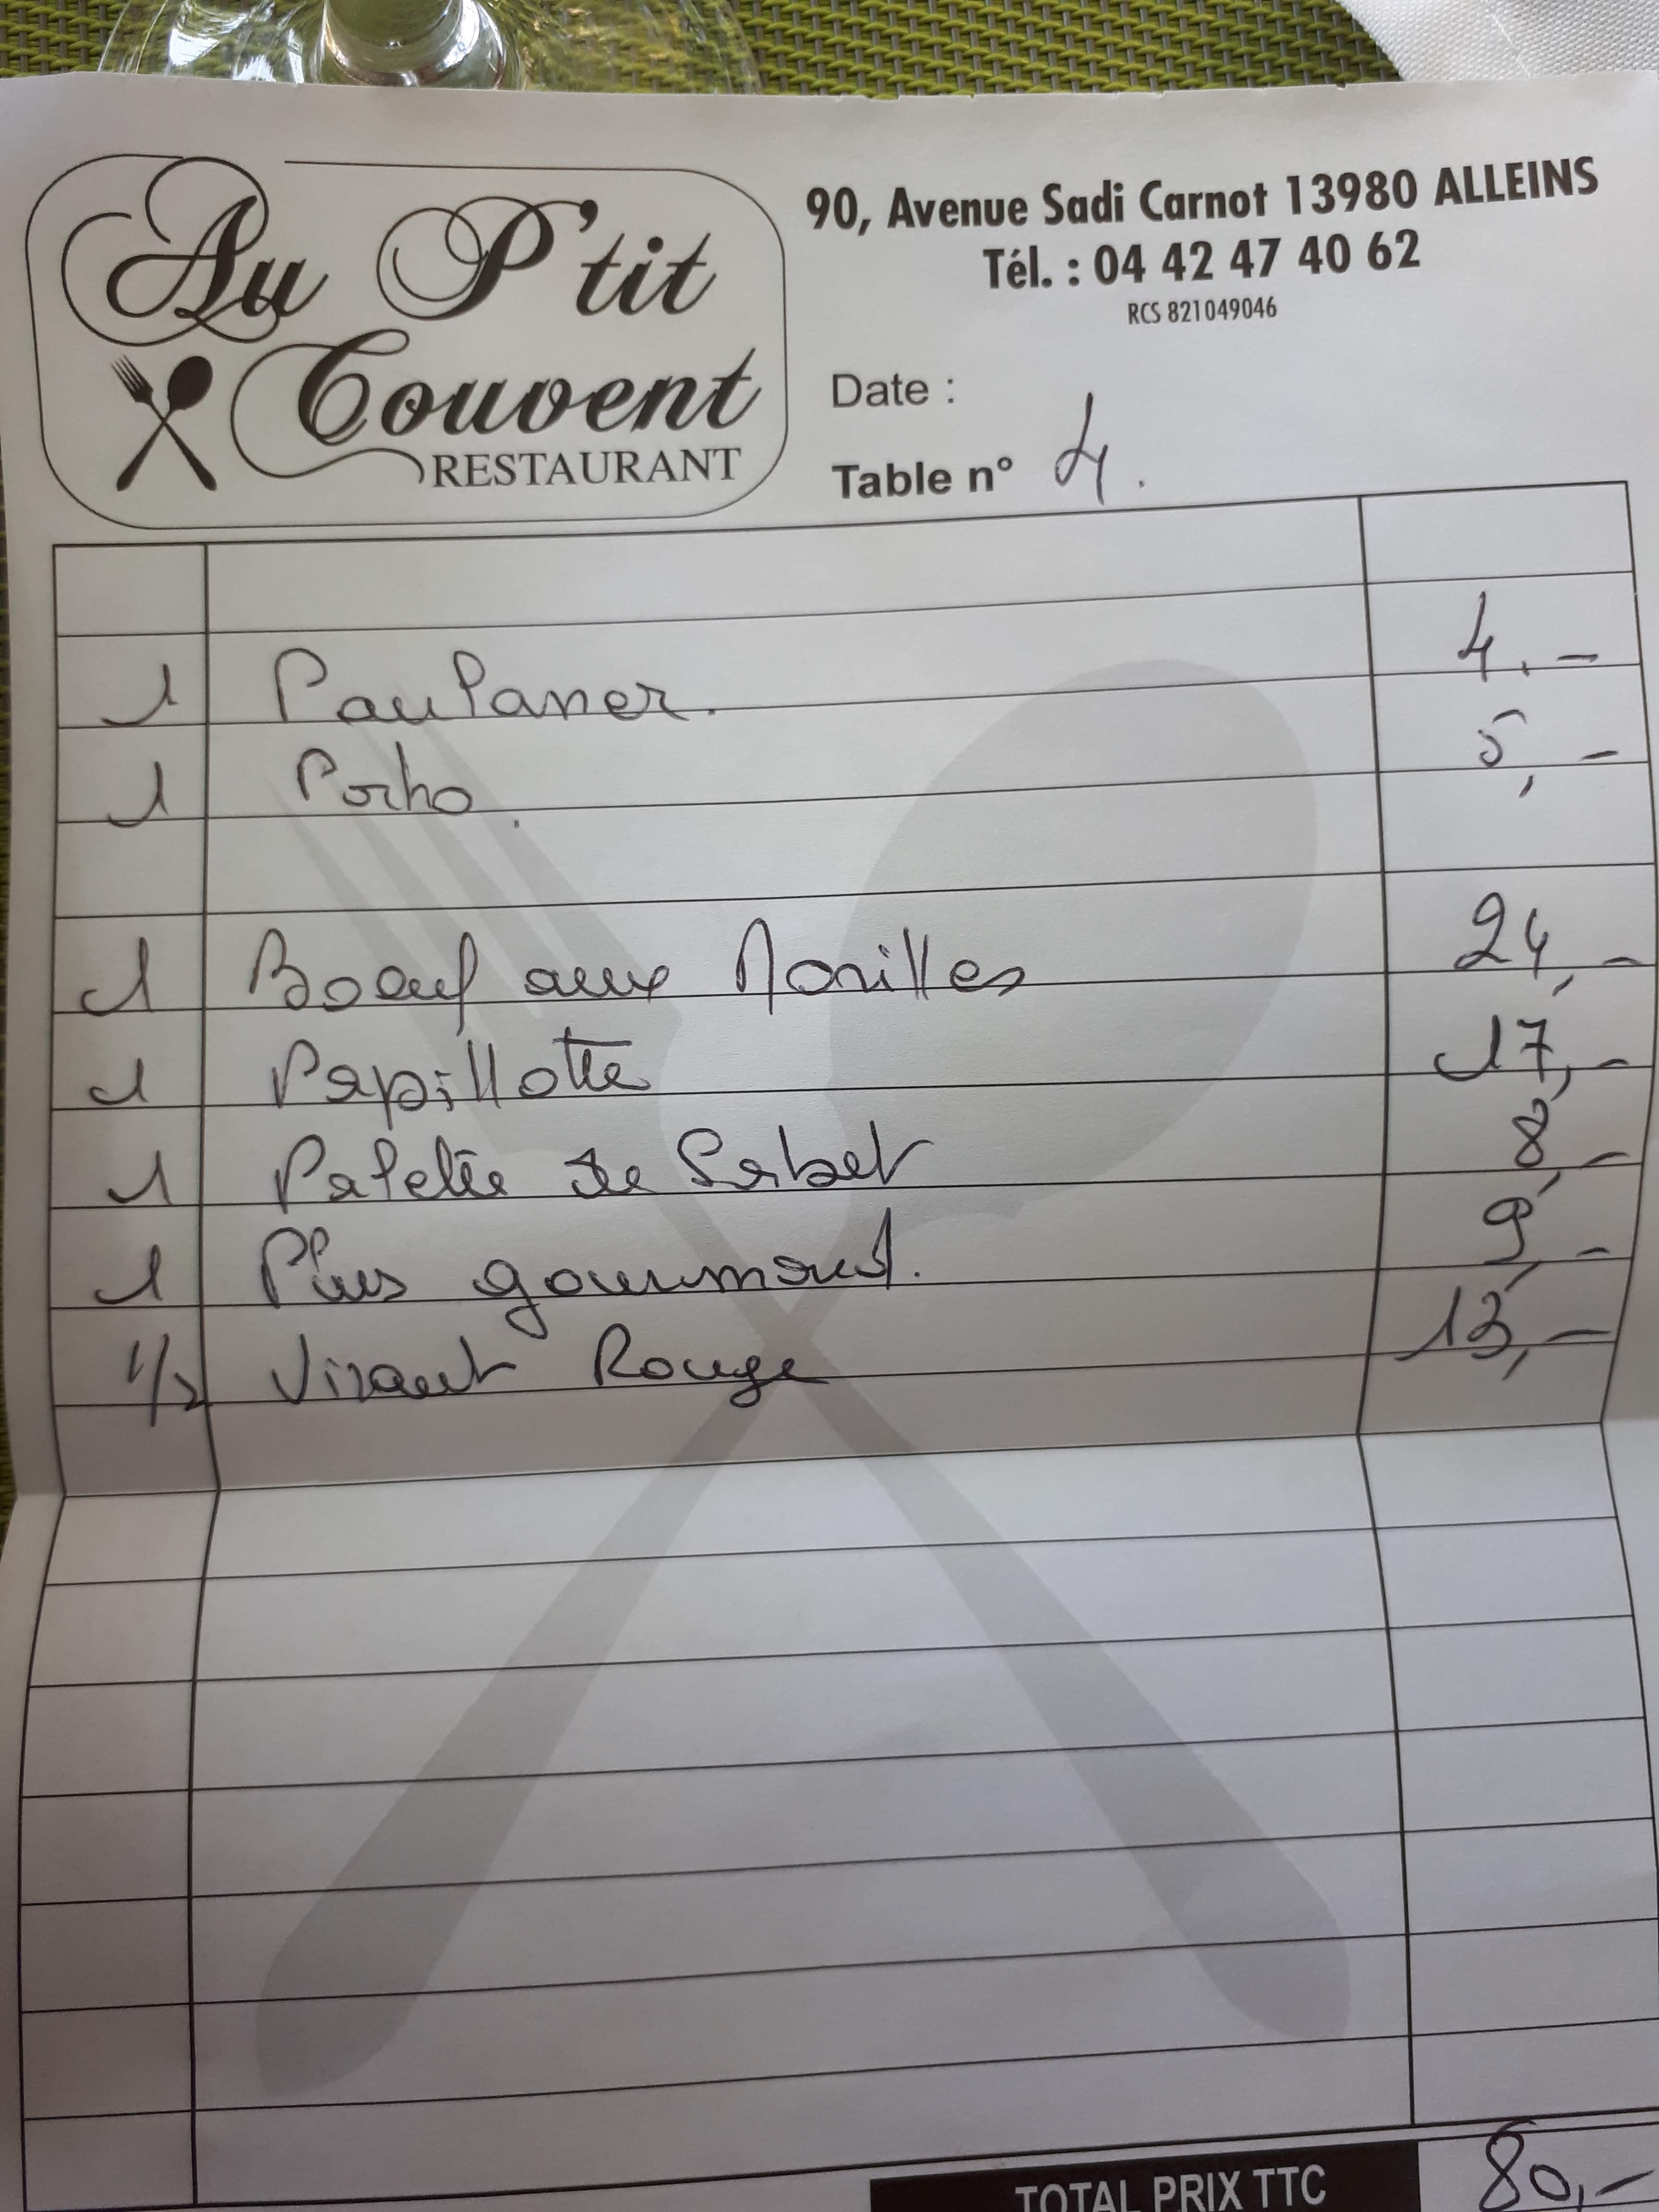 Au P'tit
Couvent
RESTAURANT
90, Avenue Sadi Carnot 13980 ALLEINS
Tél. : 04 42 47 40 62
RCS 821049046
Date :
Table n° 4.
1 Paulaner. 4,-
1 Porto. 5,-
1 Boeuf aux Morilles 24,-
1 Papillotte 17,-
1 Palette de Sorbet 8,-
1 Plus gourmand. 9,-
1/2 Rouge 13,-
TOTAL PRIX TTC 80,-